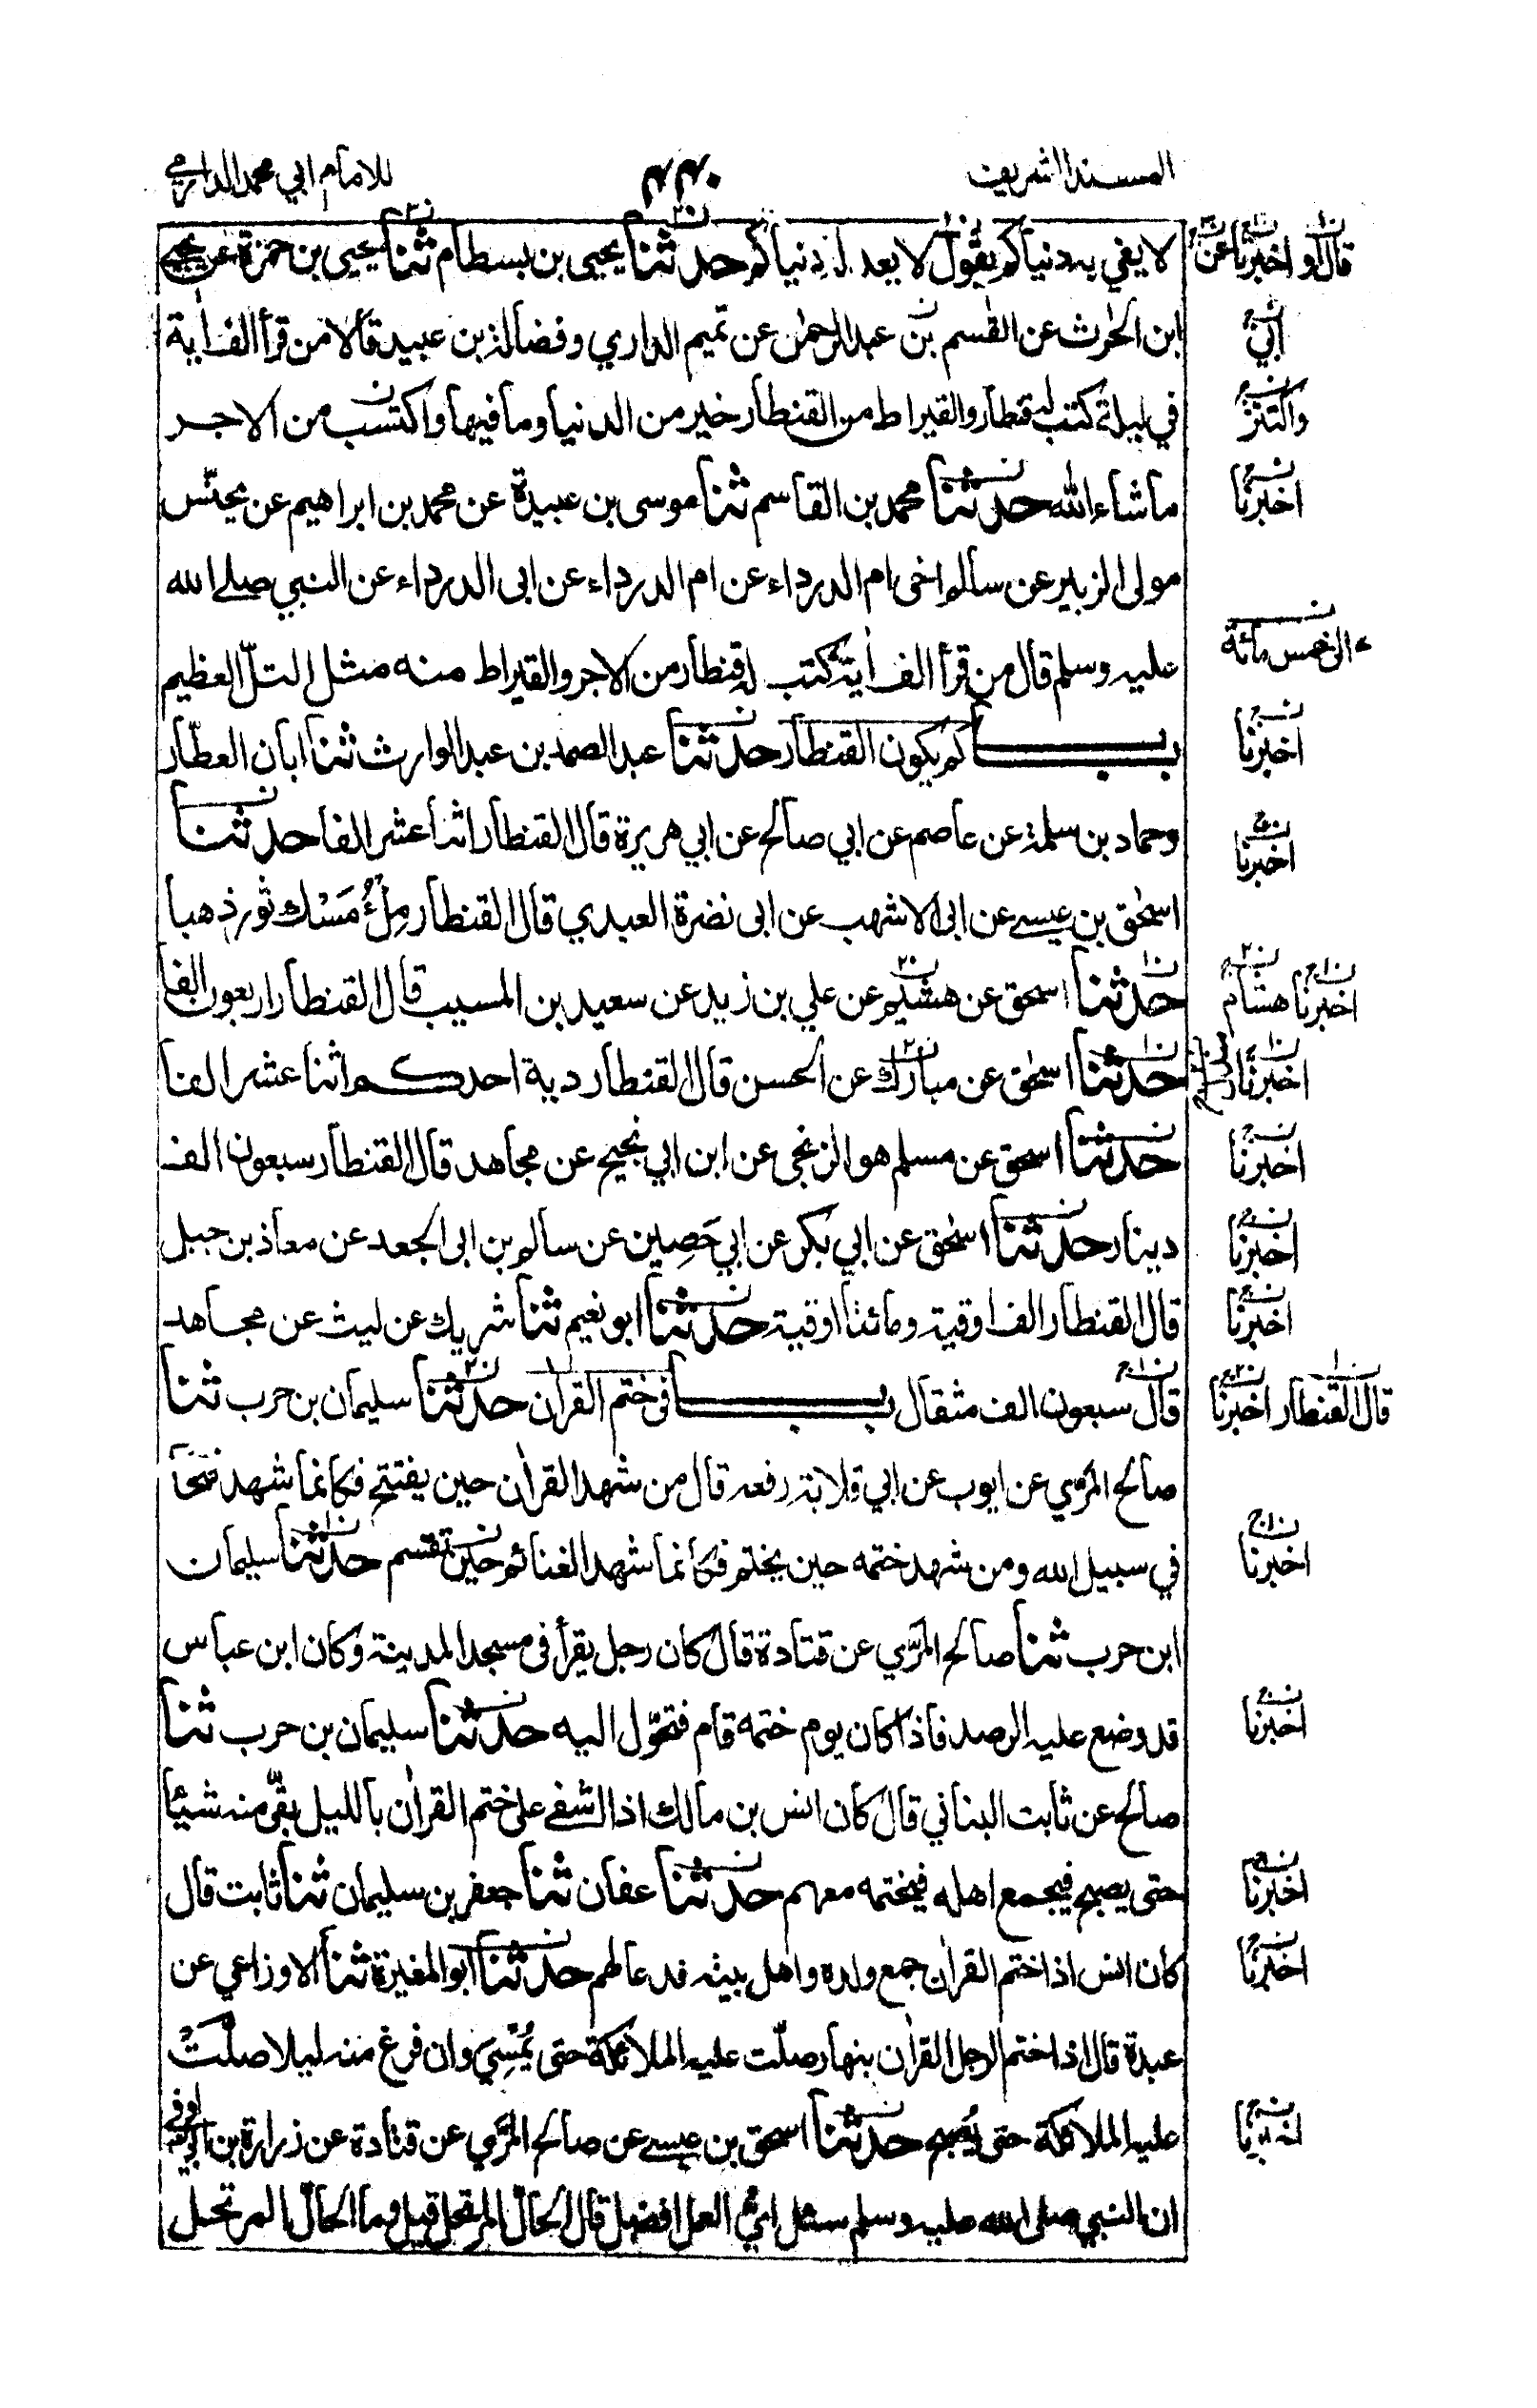 المسند الشريف
٤٤٠
للامام ابي محمد الدارمي
لا يفي به دنياكم يقول لا يعدله دنياكم حدثنا يحيى بن بسطام ثنا يحيى بن حمزة عن يحيى
ابن الحٰرث عن القٰسم بن عبد الرحمٰن عن تميم الداري وفضالة بن عبيد قالا من قرأ الف اٰية
في ليلة كتب له قنطار والقيراط من القنطار خير من الدنيا وما فيها واكتسب من الاجر
ما شاء الله حدثنا محمد بن القاسم ثنا موسى بن عبيدة عن محمد بن ابراهيم عن يحنّس
مولى الزبير عن سالم اخى ام الدرداء عن ام الدرداء عن ابى الدرداء عن النبي صلے الله
عليه وسلم قال من قرأ الف اٰية كتب له قنطار من الاجر والقيراط منه مثل التلّ العظيم
بــاب كم يكون القنطار حدثنا عبد الصمد بن عبد الوارث ثنا ابان العطّار
وحماد بن سلمة عن عاصم عن ابي صالح عن ابي هريرة قال القنطار اثنا عشر الفا حدثنا
اسحٰق بن عيسے عن ابى الاشهب عن ابى نضرة العبدي قال القنطار مِلْءُ مَسْك ثور ذهبا
حدثنا اسحق عن هشيم عن علي بن زيد عن سعيد بن المسيب قال القنطار اربعون الفا
حدثنا اسحٰق عن مبارك عن الحسن قال القنطار دية احدكم اثنا عشر الفا
حدثنا اسحق عن مسلم هو الزنجى عن ابن ابي نجيح عن مجاهد قال القنطار سبعون الف
دينار حدثنا اسحٰق عن ابي بكر عن ابي حَصِين عن سالم بن ابى الجعد عن معاذ بن جبل
قال القنطار الف اوقية ومائتا اوقية حدثنا ابو نعيم ثنا شريك عن ليث عن مجاهد
قال سبعون الف مثقال بــاب فى ختم القراٰن حدثنا سليمان بن حرب ثنا
صالح المرّي عن ايوب عن ابي قلابة رفعه قال من شهد القراٰن حين يفتتح فكانما شهد فتحا
في سبيل الله ومن شهد ختمه حين يختم فكانما شهد الغنائم حين تقسم حدثنا سليمان
ابن حرب ثنا صالح المرّي عن قتادة قال كان رجل يقرأ فى مسجد المدينة وكان ابن عباس
قد وضع عليه الرصد فاذا كان يوم ختمه قام فتحوّل اليه حدثنا سليمان بن حرب ثنا
صالح عن ثابت البناني قال كان انس بن مالك اذا اشفے على ختم القراٰن بالليل بقّى منه شيئا
حتى يصبح فيجمع اهله فيختمه معهم حدثنا عفان ثنا جعفر بن سليمان ثنا ثابت قال
كان انس اذا ختم القراٰن جمع ولده واهل بيته فدعا لهم حدثنا ابو المغيرة ثنا الاوزاعي عن
عبدة قال اذا ختم الرجل القراٰن بنهار صلّت عليه الملائكة حتى يُمْسِيَ وان فرغ منه ليلا صلّتْ
عليه الملائكة حتى يُصبح حدثنا اسحق بن عيسے عن صالح المرّي عن قتادة عن زرارة بن ابي اوفى
ان النبي صلى الله عليه وسلم سئل ايّ العمل افضل قال الحالّ المرتحل قيل وما الحالّ المرتحل
قال او اخبرنا عن
ابي
واكتنز
اخبرنا
الى خمس مائة
اخبرنا
اخبرنا
اخبرنا هشام
اخبرنا
اخبرنا
اخبرنا
اخبرنا
قال القنطار اخبرنا
اخبرنا
اخبرنا
اخبرنا
اخبرنا
اخبرنا